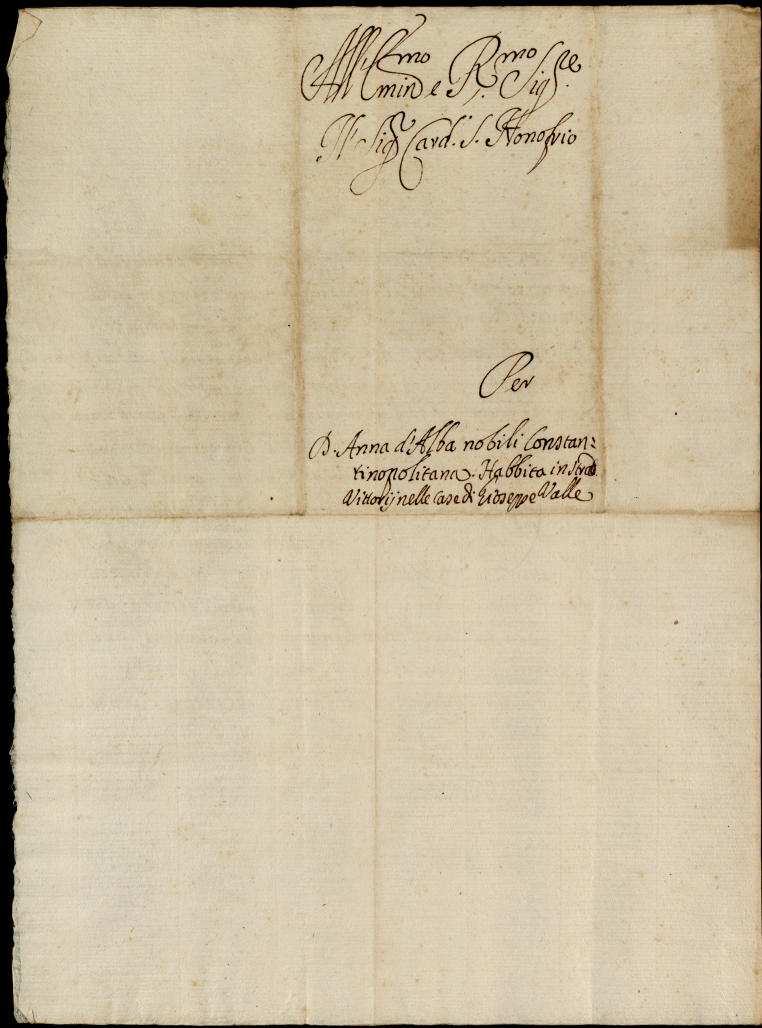 All' Em.mo e R.mo Sig.re
Il Sig.r Card. S. Honofrio
Per
D. Anna d'Alba nobili Constan=
tinopolitana. Habbita in Strada
Vittorij nelle Case di Giuseppe Valle